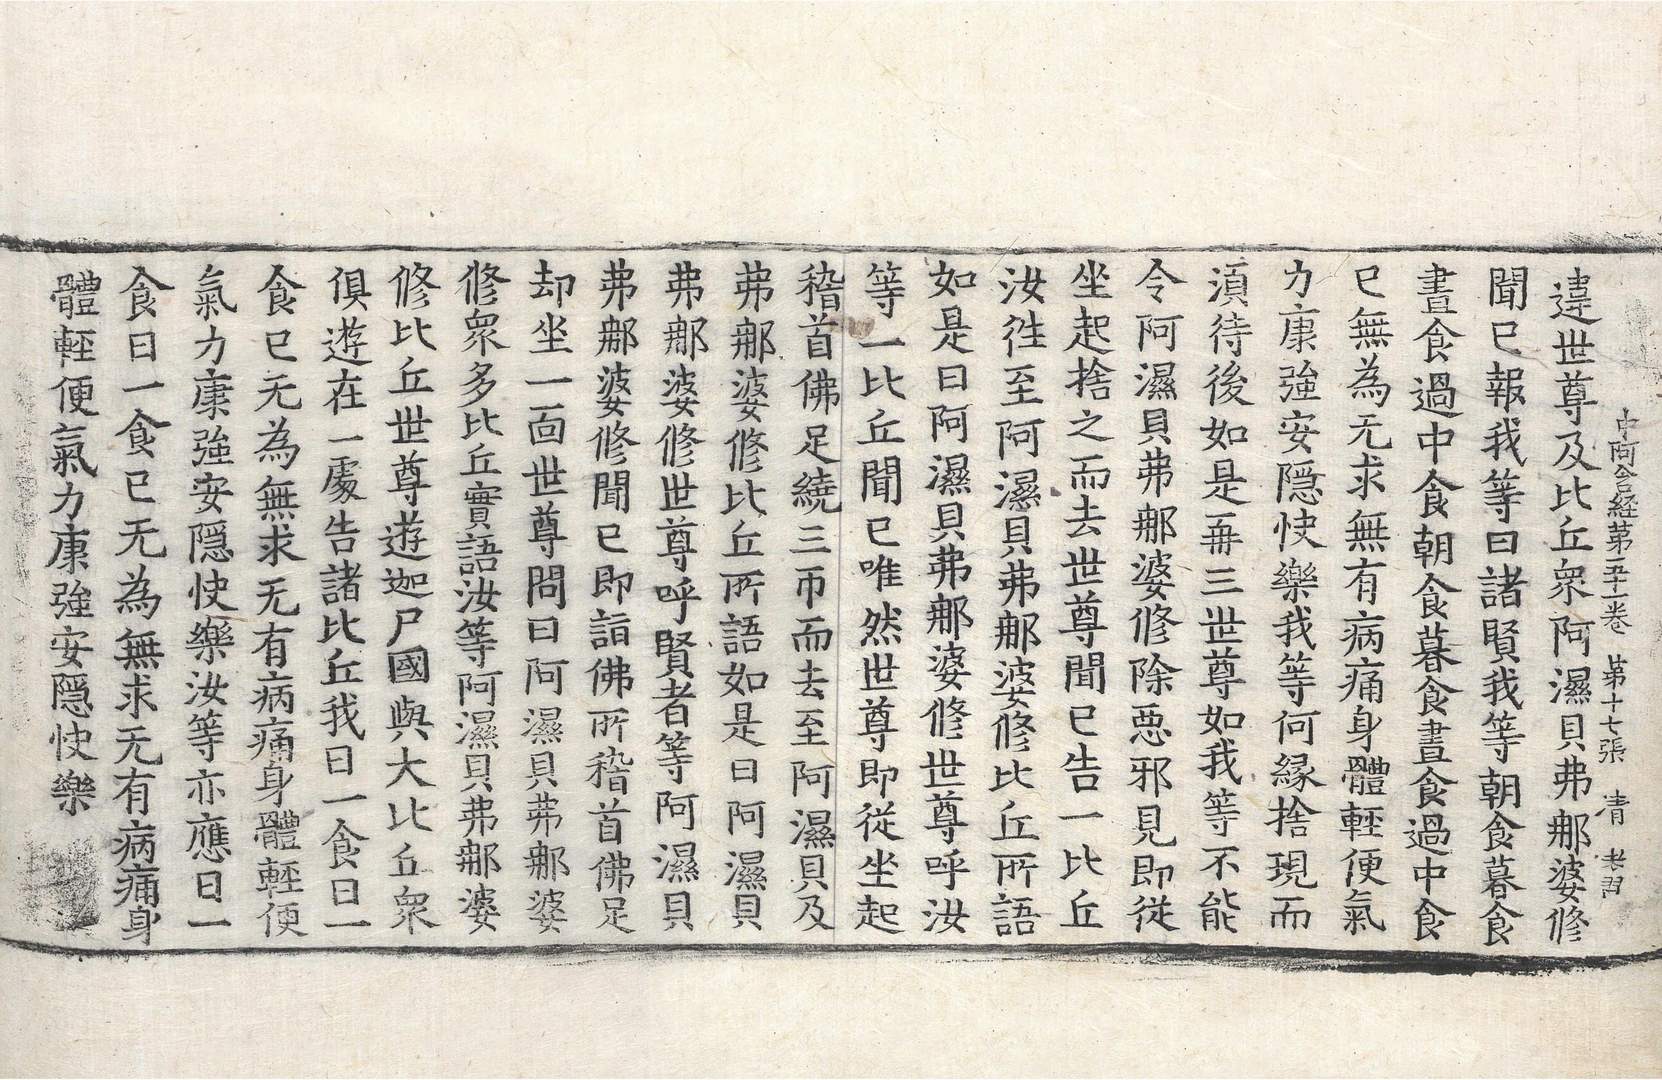 中阿含経苐五十一卷 苐十七張 清 孝昌
違世尊及比丘衆阿濕貝弗𨚗婆修
聞已報我等曰諸賢我等朝食暮食
晝食過中食朝食暮食晝食過中食
已無為无求無有病痛身體輊便氣
力康強安隱快樂我等何緣捨現而
湏待後如是再三世尊如我等不能
令阿濕貝弗𨚗婆修除惡邪見即從
坐起捨之而去世尊聞已告一比丘
汝往至阿濕貝弗𨚗婆修比丘所語
如是曰阿濕貝弗𨚗婆修世尊呼汝
等一比丘聞已唯然世尊即從坐起
稽首佛足繞三帀而去至阿濕貝及
弗𨚗婆修比丘所語如是曰阿濕貝
弗𨚗婆修世尊呼賢者等阿濕貝
弗𨚗婆修聞已即詣佛所稽首佛足
却坐一面世尊問曰阿濕貝弗𨚗婆
修衆多比丘實語汝等阿濕貝弗𨚗婆
修比丘世尊遊迦尸國與大比丘衆
俱遊在一處告諸比丘我日一食日一
食已无為無求无有病痛身體輊便
氣力康強安隱快樂汝等亦應日一
食日一食已无為無求无有病痛身
體輊便氣力康強安隱快樂